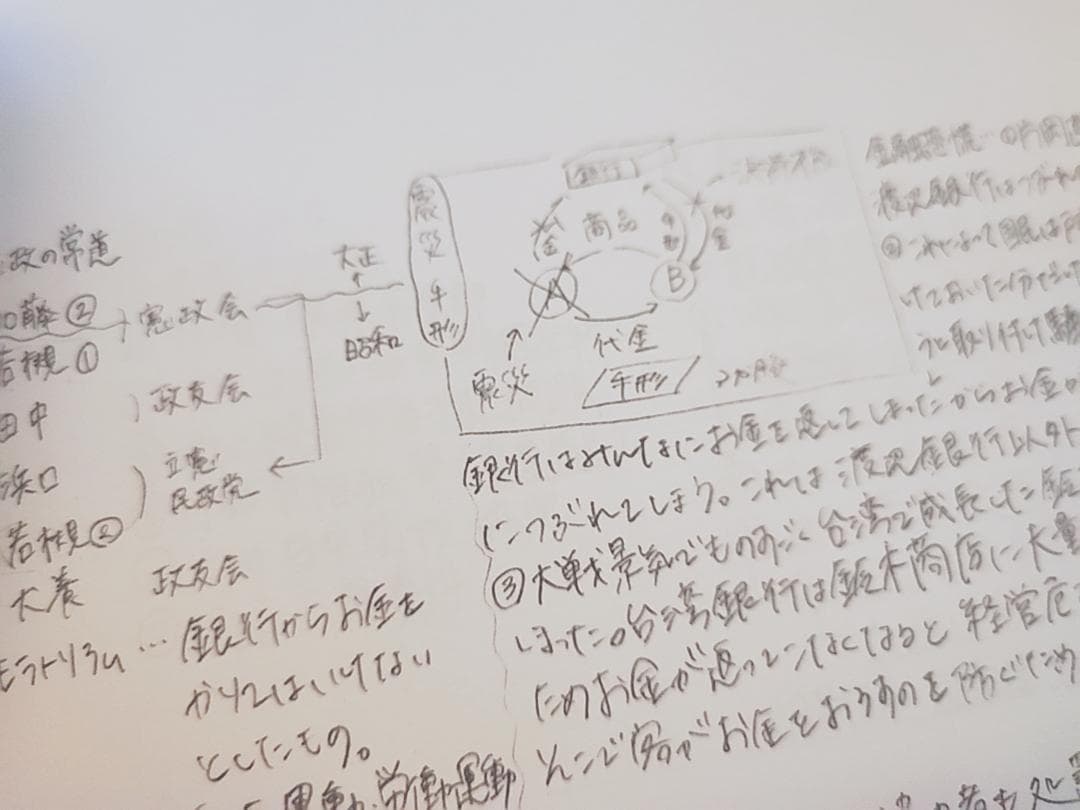 政の常道
加藤②
憲政会
若槻①
田中
政友会
浜口
立憲
民政党
若槻②
犬養
政友会
モラトリアム…銀行からお金を
かりてはいけない
としたもの。
労働運動
大正
昭和
震災手形
銀行
商品
手形
A
B
代金
震災
手形
金融恐慌…①片岡
渡辺銀行はつぶれ
②これによって
銀行はみんなにお金を返してしまったからお金が
につぶれてしまう。これは渡辺銀行以外
③大戦景気でものすごく台湾で成長した
しまった。台湾銀行は鈴木商店に大量
ためお金が返ってこなくなると経営危
そこで客がお金をおろすのを防ぐため